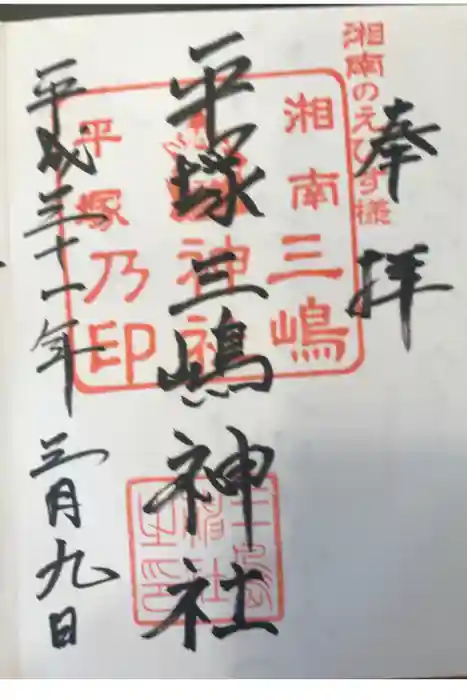 湘南のえびす様
奉拝
平塚三嶋神社
平成三十一年三月九日
湘南
三嶋
神社
平塚
乃印